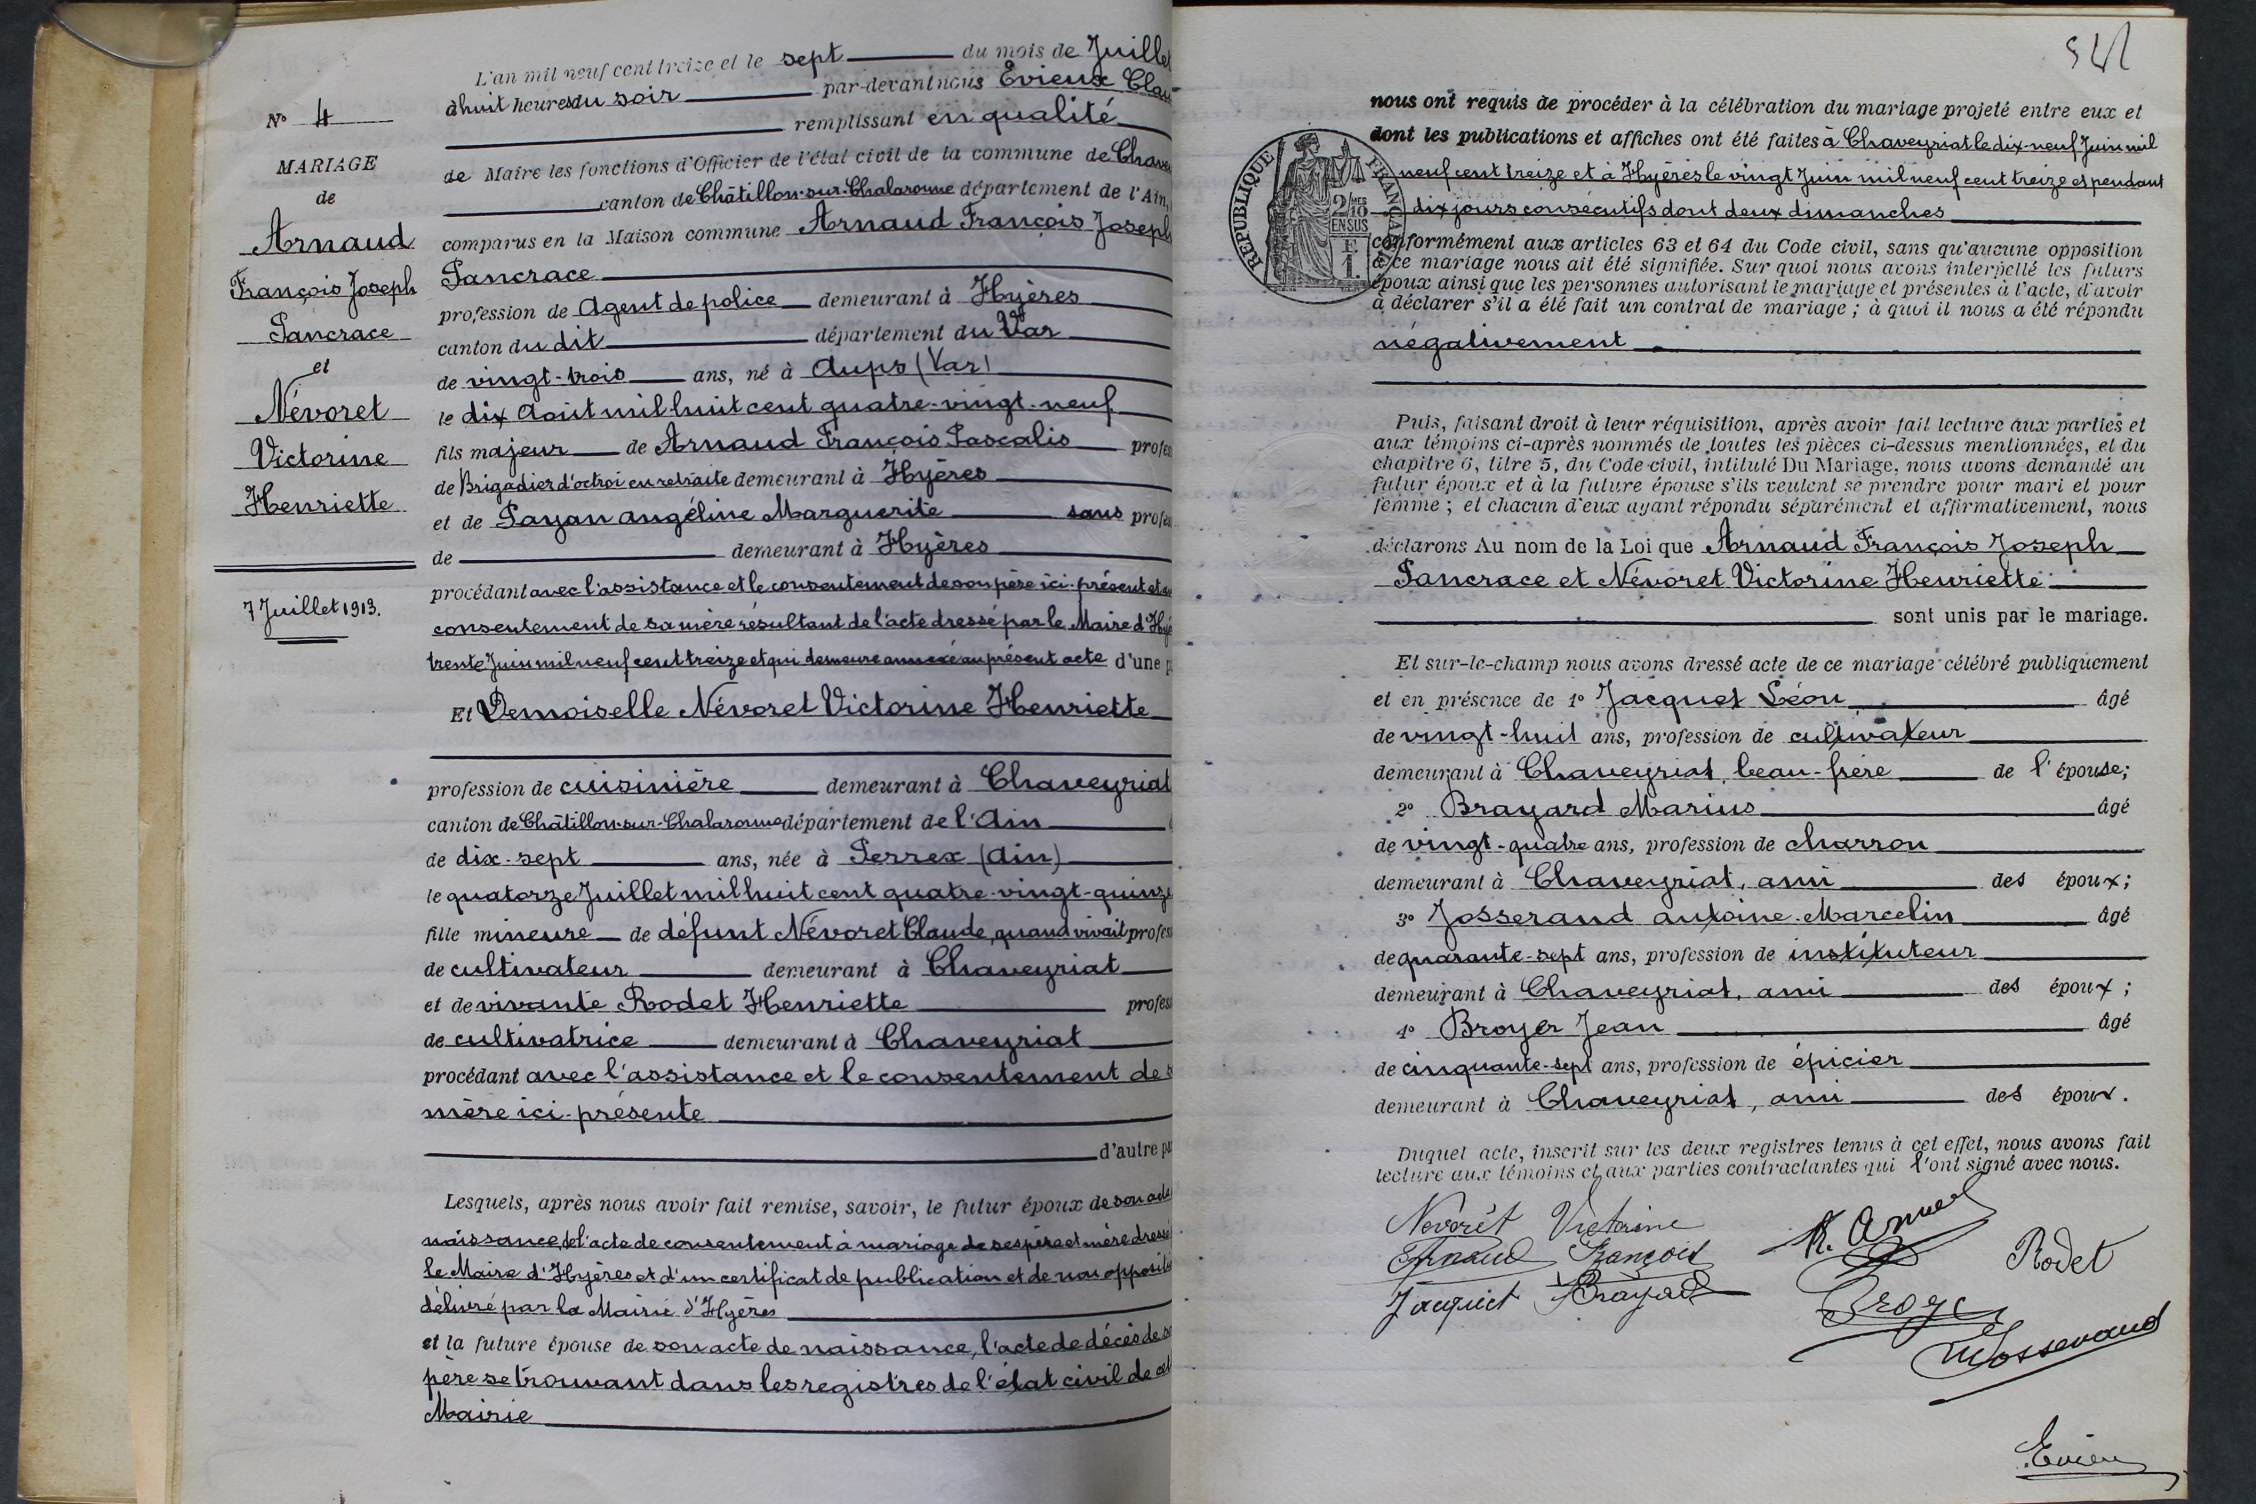 L'an mil neuf cent treize et le sept du mois de Juillet
à huit heures du soir par-devant nous Evieux Clau
N° 4
remplissant en qualité
MARIAGE
de Maire les fonctions d'Officier de l'état civil de la commune de Chave
de
canton de Châtillon-sur-Chalaronne département de l'Ain,
Arnaud
comparus en la Maison commune Arnaud François Joseph
François Joseph
Pancrace
Pancrace
profession de Agent de police demeurant à Hyères
et
canton du dit département du Var
Névoret
de vingt-trois ans, né à Aups (Var)
Victorine
le dix Août mil huit cent quatre-vingt-neuf
Henriette
fils majeur de Arnaud François Pascalis profes
7 Juillet 1913.
de Brigadier d'octroi en retraite demeurant à Hyères
et de Payan Angéline Marguerite sans profes
de demeurant à Hyères
procédant avec l'assistance et le consentement de son père ici-présent et
consentement de sa mère résultant de l'acte dressé par le Maire d'Hyè
trente Juin mil neuf cent treize et qui demeure annexé au présent acte d'une p
Et Demoiselle Névoret Victorine Henriette
profession de cuisinière demeurant à Chaveyriat
canton de Châtillon-sur-Chalaronne département de l'Ain
de dix-sept ans, née à Perrex (Ain)
le quatorze Juillet mil huit cent quatre-vingt-quinze
fille mineure de défunt Névoret Claude, quand vivait profes
de cultivateur demeurant à Chaveyriat
et de vivante Rodet Henriette profes
de cultivatrice demeurant à Chaveyriat
procédant avec l'assistance et le consentement de s
mère ici-présente
d'autre pa
Lesquels, après nous avoir fait remise, savoir, le futur époux de son acte
naissance, de l'acte de consentement à mariage de ses père et mère dressé
le Maire d'Hyères et d'un certificat de publication et de non opposit
délivré par la Mairie d'Hyères
et la future épouse de son acte de naissance, l'acte de décès de so
père se trouvant dans les registres de l'état civil de cet
Mairie
nous ont requis de procéder à la célébration du mariage projeté entre eux et
dont les publications et affiches ont été faites à Chaveyriat le dix-neuf Juin mil
neuf cent treize et à Hyères le vingt Juin mil neuf cent treize et pendant
dix jours consécutifs dont deux dimanches
RÉPUBLIQUE FRANÇAISE
2/10 MES
EN SUS
F
1.
conformément aux articles 63 et 64 du Code civil, sans qu'aucune opposition
à ce mariage nous ait été signifiée. Sur quoi nous avons interpellé les futurs
époux ainsi que les personnes autorisant le mariage et présentes à l'acte, d'avoir
à déclarer s'il a été fait un contrat de mariage ; à quoi il nous a été répondu
négativement
Puis, faisant droit à leur réquisition, après avoir fait lecture aux parties et
aux témoins ci-après nommés de toutes les pièces ci-dessus mentionnées, et du
chapitre 6, titre 5, du Code civil, intitulé Du Mariage, nous avons demandé au
futur époux et à la future épouse s'ils veulent se prendre pour mari et pour
femme ; et chacun d'eux ayant répondu séparément et affirmativement, nous
déclarons Au nom de la Loi que Arnaud François Joseph
Pancrace et Névoret Victorine Henriette
sont unis par le mariage.
Et sur-le-champ nous avons dressé acte de ce mariage célébré publiquement
et en présence de 1° Jacquet Léon âgé
de vingt-huit ans, profession de cultivateur
demeurant à Chaveyriat, beau-frère de l'épouse;
2° Brayard Marius âgé
de vingt-quatre ans, profession de charron
demeurant à Chaveyriat, ami des époux;
3° Josserand Antoine-Marcelin âgé
de quarante-sept ans, profession de instituteur
demeurant à Chaveyriat, ami des époux ;
4° Broyer Jean âgé
de cinquante-sept ans, profession de épicier
demeurant à Chaveyriat, ami des époux.
Duquel acte, inscrit sur les deux registres tenus à cet effet, nous avons fait
lecture aux témoins et aux parties contractantes qui l'ont signé avec nous.
Nevorêt Victorine
Arnaud François Rodet
Jacquet Brayard Broyer
Josserand
Evieux